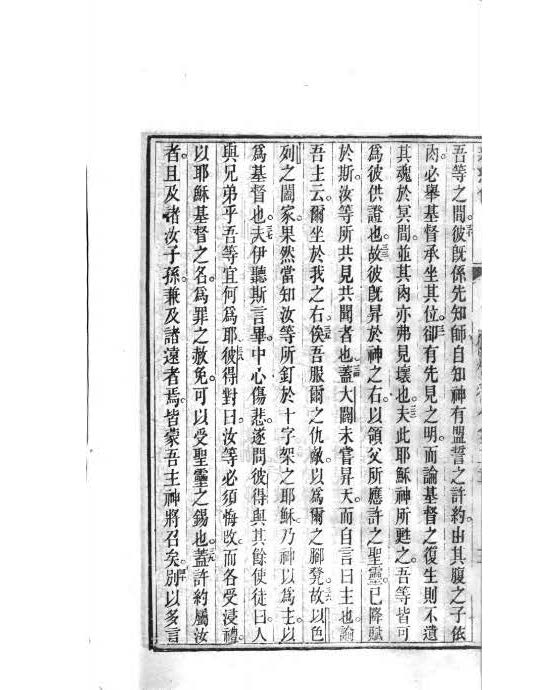 吾等之間。彼旣係先知師自知神有盟誓之許約。由其腹之子依
肉。必舉基督承坐其位。卻有先見之明。而論基督之復生則不遺
其魂於冥間。並其肉亦弗見壞也。夫此耶穌神所甦之。吾等皆可
爲彼供證也。故彼旣昇於神之右。以領父所應許之聖靈。已降賦
於斯。汝等所共見共聞者也。蓋大闢未嘗昇天。而自言曰主也。論
吾主云。爾坐於我之右。俟吾服爾之仇敵以爲爾之腳凳。故以色
列之闔家。果然當知汝等所釘於十字架之耶穌。乃神以爲主。以
爲基督也。夫伊聽斯言畢。中心傷悲。遂問彼得與其餘使徒曰人
與兄弟乎。吾等宜何爲耶。彼得對曰。汝等必須悔改。而各受浸禮。
以耶穌基督之名。爲罪之赦免。可以受聖靈之錫也。蓋許約屬汝
者。且及諸汝子孫。兼及諸遠者焉。皆蒙吾主神將召矣。別以多言